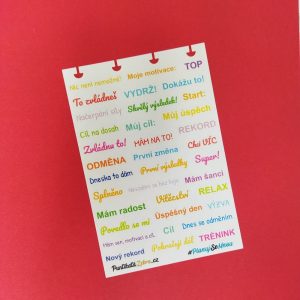 Nic není nemožné! Moje motivace: TOP
To zvládneš VYDRŽ! Dokážu to!
Načerpání síly Skvělý výsledek! Start:
Cíl na dosah Můj cíl: Můj úspěch
Zvládnu to! MÁM NA TO! REKORD
ODMĚNA První změna Chci VÍC
Dneska to dám První výsledky Super!
Splněno Mám šanci
Mám radost Vítězství RELAX
Povedlo se mi Úspěšný den VÝZVA
Cíl Dnes se odměním
Nový rekord Pokračuji dál TRÉNINK
PuntikataZebra.cz #PlanujSeMnou